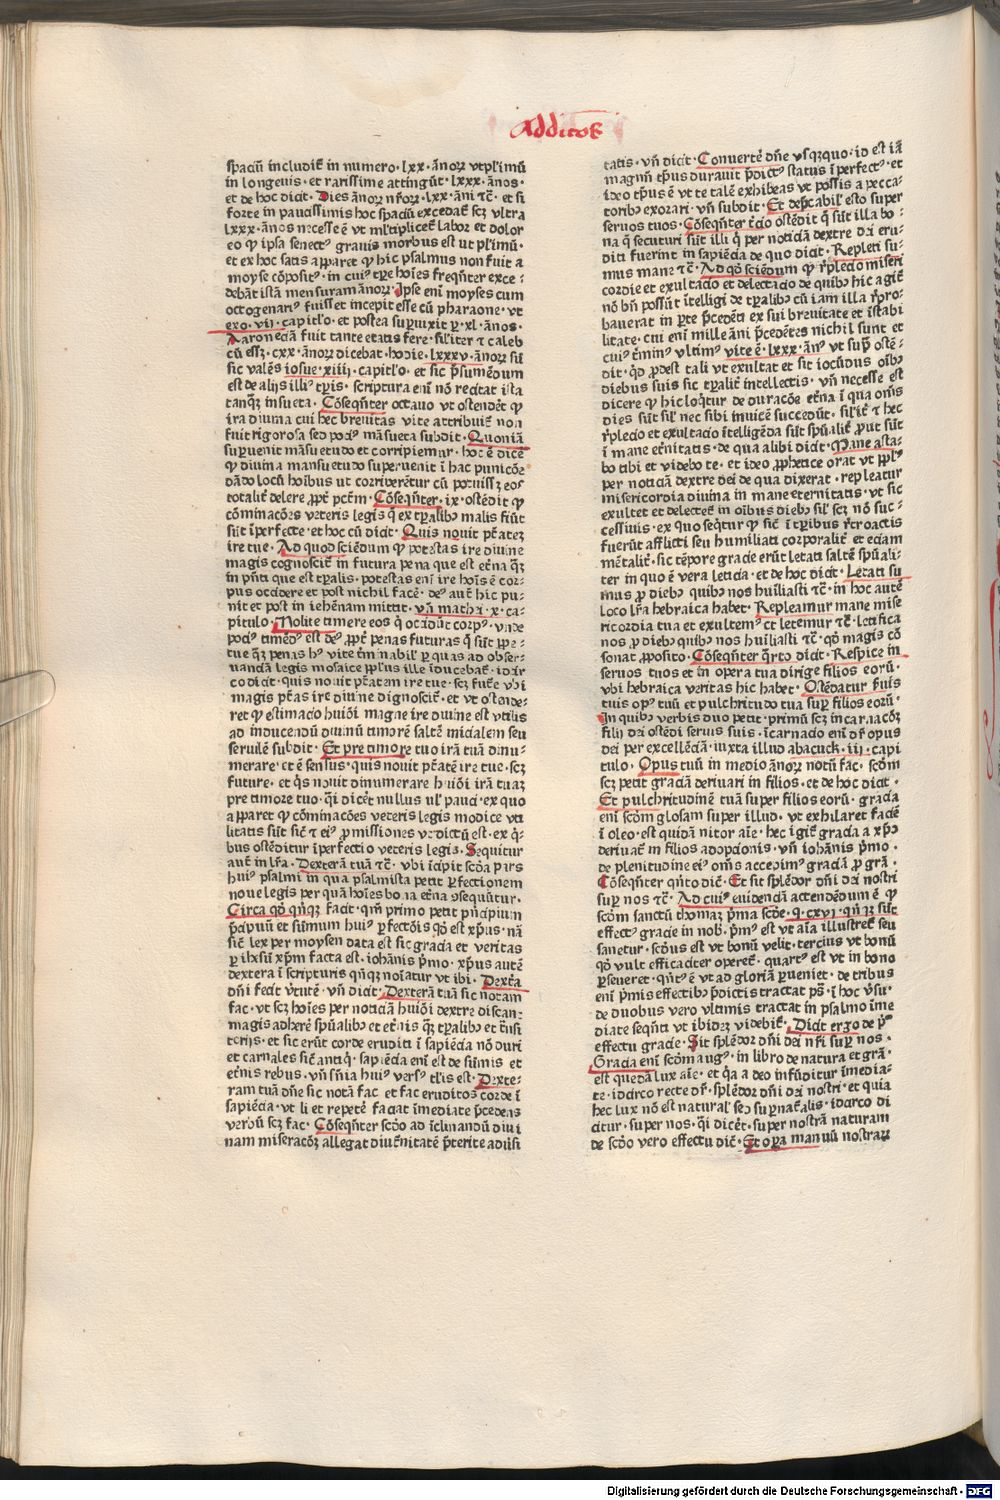 Additoꝝ
spaciū includiť in numero · lxx · ānoꝝ vtpl'imū
in longeuis · et rarissime attingūt · lxxx · ānos ·
et de hoc dicit · Dies ānoꝝ nr̄oꝝ · lxx · āni ⁊c̄ · et si
forte in paucissimis hoc spaciū excedať scꝫ vltra
lxxx · ānos necesse ē vt ml'tipliceť labor et dolor
eo ꝙ ipsa senect⁹ grauis morbus est ut pl'imū ·
et ex hoc satis apparet ꝙ hic psalmus non fuit a
moyse cōposit⁹ · in cui⁹ tꝑe hoīes freqn̄ter exce-
debāt istā mensuram ānoꝝ · Ipse eni moyses cum
octogenari⁹ fuisset incepit esse cū pharaone · vt
exo · vii · capitl'o · et postea suꝑuixit ꝑ · xl · ānos ·
Aaron eciā fuit tante etatis fere · sil'iter ⁊ caleb
cū essꝫ · cxx · ānoꝝ dicebat · hodie · lxxxv · ānoꝝ sū
sic valēs iosue · xiiij · capitl'o · et sic p̄sumēdum
est de alijs illi⁹ tꝑis · scriptura eni nō recitat ista
tanqꝫ insueta · Cōseqn̄ter octauo vt ostendeť ꝙ
ira diuina cui hec breuitas vite attribuiť non
fuit rigorosa sed poci⁹ māsueta subdit · Quoniā
suꝑuenit māsuetudo et corripiemur · hoc ē dicē
ꝙ diuina mansuetudo superuenit ī hac punicōē
dādo locū hoībus ut corriꝑētur cū potuissꝫ eos
totaliť delere ꝓpť pctm̄ · Cōseqn̄ter · ix · ostēdit ꝙ
cōminacōēs veteris legis q̄ ex tꝑalibꝰ malis fiūt
sūt īperfecte · et hoc cū dicit · Quis nouit ptātez
ire tue · Ad quod sciendum ꝙ potestas ire diuine
magis cognosciť in futura pena que est etn̄a qꝫ
in pn̄ti que est tꝑalis · potestas eni ire hoīs ē cor-
pus occidere et post nichil facē · de⁹ auť hic pu-
nit et post in iehēnam mittit · vn̄ mathi · x · ca-
pitulo · Nolite timere eos q̄ occidūt corp⁹ · vnde
poci⁹ timēd⁹ est de⁹ ꝓpť penas futuras q̄ sūt ꝑpe-
tue qꝫ penas h⁹ vite tm̄inabil' ꝑ quas ad obser-
uanciā legis mosaice ppl'us ille īducebať · idcir
co dicit · quis nouit ptātem ire tue · scꝫ futūe vbi
magis ptās ire diuine dignosciť · et vt ostende-
ret ꝙ estimacio huiōi magne ire diuine est vtilis
ad inducendū diuinū timorē saltē inicialem seu
seruilē subdit · Et pre timore tuo irā tuā dinu-
merare · et ē sensus · quis nouit ptātē ire tue · scꝫ
future · et qs̄ nouit dinumerare huiōi irā tuaꝫ
pre timore tuo · q̄i dicēt nullus ul' pauci · ex quo
apparet ꝙ cōminacōes veteris legis modice vti
litatis sūt sic̄ ⁊ ei⁹ ꝓmissiones vt dictū est · ex q̄-
bus ostēditur īperfectio veteris legis · Sequitur
auť in lr̄a · Dexterā tuā ⁊c̄ · vbi īcipit scd̄a pars
hui⁹ psalmi in qua psalmista petit ꝑfectionem
noue legis per quā hoīes bona etn̄a ꝯsequūtur ·
Circa qd̄ qn̄qꝫ facit · qm̄ primo petit pn̄cipium
p̄cipuū et sūmum hui⁹ ꝑfectōis qd̄ est xp̄us · nā
sic̄ lex per moysen data est sic gracia et veritas
ꝑ ih̄xsū xp̄m facta est · iohānis p̄mo · xp̄us autē
dextera ī scripturis qn̄qꝫ noīatur vt ibi · Dextꝰa
dn̄i fecit v̄tutē · vn̄ dicit · Dexterā tuā sic notam
fac · vt scꝫ hoīes per noticiā huiōi dextre discan-
magis adherē spūalibꝰ et etn̄is qꝫ tꝑalibꝰ et tn̄si
torijs · et sic erūt corde eruditi ī sapiēcia nō duri
et carnales sic̄ antiq̄ · sapiēcia eni est de sūmis et
etn̄is rebus · vn̄ sn̄ia hui⁹ vers⁹ tl̄is est · Dexte-
ram tuā dn̄e sic notā fac et fac eruditos corde ī
sapiēcia · vt li et repetē faciat īmediate p̄cedens
verbū scꝫ fac · Cōseqn̄ter scd̄o ad īclinandū diui
nam miseracōꝫ allegat diut̄nitatē p̄terite aduˢi
tatis · vn̄ dicit · Conuertē dn̄e vsqꝫquo · id est iā
magnū tp̄us durauit p̄dict⁹ status īperfect⁹ · et
ideo tp̄us ē vt te talē exhibeas vt possis a pecca-
toribꝰ exorari · vn̄ subdit · Et dep̄cabil' esto super
seruos tuos · Cōseqn̄ter tc̄io ostēdit q̄ sūt illa bo-
na q̄ secuturi sūt illi q̄ per noticiā dextre dei eru-
diti fuerint in sapiēcia de quo dicit · Repleti su-
mus mane ⁊c̄ · Ad qd̄ sciēdum ꝙ r̄plecio miseri
cordie et exultacio et delectacio de quibꝰ hic agiť
nō bn̄ possūt ītelligi de tꝑalibꝰ cū iam illa r̄pro-
bauerat in ꝑte p̄cedēti ex sui breuitate et īstabi
litate · cui eni mille āni p̄cedētes nichil sunt et
cui⁹ tm̄in⁹ vltim⁹ vite ē · lxxx · ān⁹ vt sup̄ ostē-
dit · qd̄ ꝓdest tali vt exultet et sit iocūdus oībꝰ
diebus suis sic tꝑaliť intellectis · vn̄ necesse est
dicere ꝙ hic loq̄tur de duracōe etn̄a ī qua om̄s
dies sūt sil' nec sibi inuicē succedūt · sil'iť ⁊ hec
r̄plecio et exultacio ītelligēda sūt spūaliť ꝓut sūt
ī mane et̄nitatis · de qua alibi dicit · Mane asta-
bo tibi et videbo te · et ideo ꝓphetice orat vt ppl'⁹
per noticiā dextre dei de qua dixerat · repleatur
misericordia diuina in mane eternitatis · vt sic
exultet et delecteť in oībus diebꝰ sil' scꝫ nō suc-
cessiuis · ex quo seqt̄ur ꝙ sic̄ ī tꝑibus r̄troactis
fuerūt afflicti seu humiliati corporaliť et eciam
mētaliť · sic tēpore gracie erūt letati saltē spūali-
ter in quo ē vera leticia · et de hoc dicit · Letati su
mus ꝓ diebꝰ quibꝰ nos hūiliasti ⁊c̄ · in hoc autē
loco lr̄a hebraica habet · Repleamur mane mise
ricordia tua et exultem⁹ et letemur ⁊c̄ · letifica
nos ꝓ diebꝰ quibꝰ nos hūiliasti ⁊c̄ · qd̄ magis cō
sonat ꝓposito · Cōseqn̄ter q̄rto dicit · Respice in
seruos tuos et in opera tua dirige filios eorū ·
vbi hebraica veritas hic habet · Ostēdatur ẜuis
tuis op⁹ tuū et pulchritudo tua suꝑ filios eorū ·
In quibꝰ verbis duo petit · primū scꝫ incarnacōꝫ
filij dei ostēdi seruis suis · īcarnacio eni dr̄ opus
dei per excellēciā · iuxta illud abacuck · iij · capi
tulo · Opus tuū in medio ānoꝝ notū fac · scd̄m
scꝫ petit graciā deriuari in filios · et de hoc dicit ·
Et pulchritudinē tuā super filios eorū · gracia
eni scd̄m glosam super illud · vt exhilaret faciē
ī oleo · est quidā nitor aīe · hec igiť gracia a xp̄o
deriuať in filios adopcionis · vn̄ iohānis p̄mo ·
de plenitudine ei⁹ om̄s accepim⁹ graciā ꝓ grā ·
Cōseqn̄ter qn̄to dic̄ · Et sit splēdor dn̄i dei nostri
suꝑ nos ⁊c̄ · Ad cui⁹ euidenciā attendēdum ē ꝙ
scd̄m sanctū thomaꝫ p̄ma scd̄e · q · cxvi · qn̄qꝫ sūt
effect⁹ gracie in nobꝰ · p̄m⁹ est vt aīa illustreť seu
sanetur · scd̄us est vt bonū velit · tercius vt bonū
qd̄ vult efficaciter opereť · quart⁹ est vt in bono
ꝑseueret · qn̄t⁹ ē vt ad gloriā ꝑueniet · de tribus
eni p̄mis effectibꝰ p̄dictis tractat pˢ · ī hoc v̄su ·
de duobus vero vltimis tractat in psalmo īme
diate seqn̄ti vt ibideꝫ videbiť · Dicit ergo de p̄⁰
effectu gracie · Sit splēdor dn̄i dei nr̄i suꝑ nos ·
Gracia eni scd̄m aug⁹ · in libro de natura et grā ·
est quedā lux aīe · et q̄a a deo infūditur īmedia-
te · idcirco recte dr̄ · splēdor dn̄i dei nostri · et quia
hec lux nō est natural' seꝫ suꝑnat̄alis · idcirco di
citur · super nos · q̄i dicēt · super nostrā naturam
de scd̄o vero effectu dic̄ · Et oꝑa manuū nostraꝝ
Digitalisierung gefördert durch die Deutsche Forschungsgemeinschaft - DFG